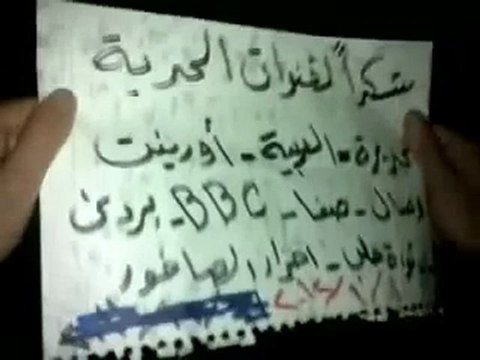 شكراً لقنوات الحرية
جزيرة - العربية - أورينت
وصال - صفا - BBC - بردى
حلب - احرار الصاخور